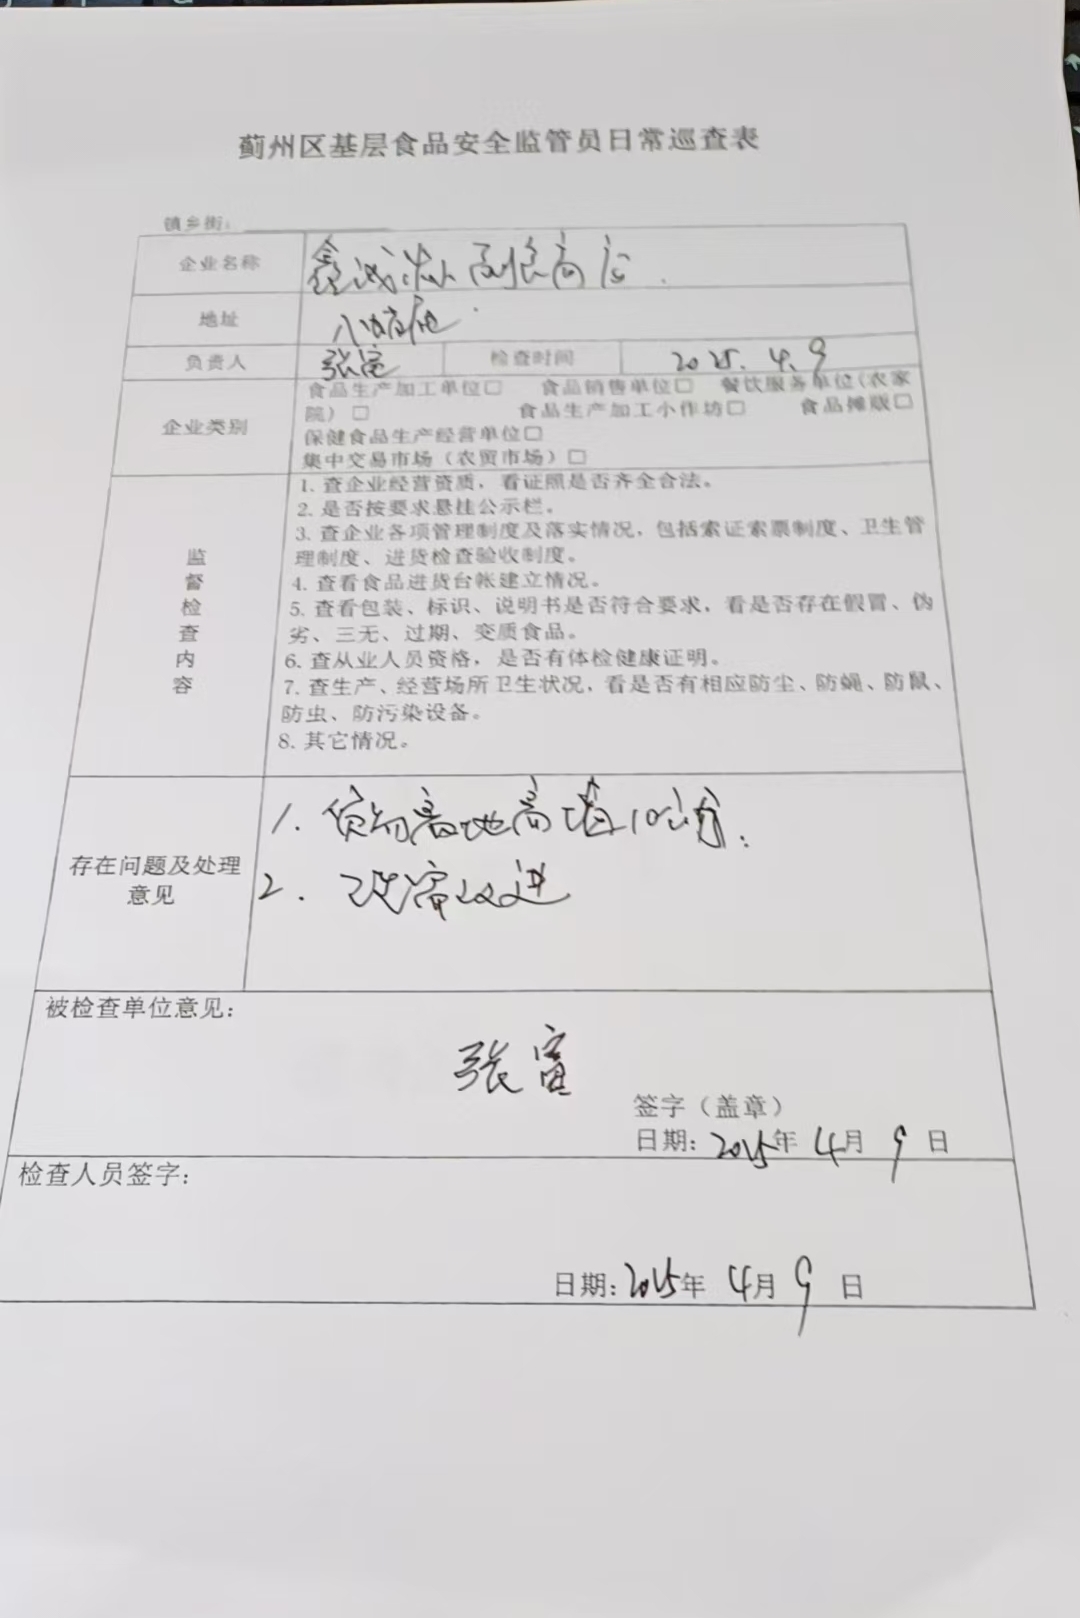 蓟州区基层食品安全监管员日常巡查表
镇乡街：
企业名称 鑫诚 副食商店
地址
负责人 张富 检查时间 2025.4.9
企业类别 食品生产加工单位□ 食品销售单位□ 餐饮服务单位(农家
院）□ 食品生产加工小作坊□ 食品摊贩□
保健食品生产经营单位□
集中交易市场（农贸市场）□
监督检查内容
1. 查企业经营资质，看证照是否齐全合法。
2. 是否按要求悬挂公示栏。
3. 查企业各项管理制度及落实情况，包括索证索票制度、卫生管
理制度、进货检查验收制度。
4. 查看食品进货台帐建立情况。
5. 查看包装、标识、说明书是否符合要求，看是否存在假冒、伪
劣、三无、过期、变质食品。
6. 查从业人员资格，是否有体检健康证明。
7. 查生产、经营场所卫生状况，看是否有相应防尘、防蝇、防鼠、
防虫、防污染设备。
8. 其它情况。
存在问题及处理
意见
1. 货物离地离墙10公分；
2. 改进
被检查单位意见：
张富
签字（盖章）
日期：2025年 4月 9日
检查人员签字：
日期：2025年 4月 9日